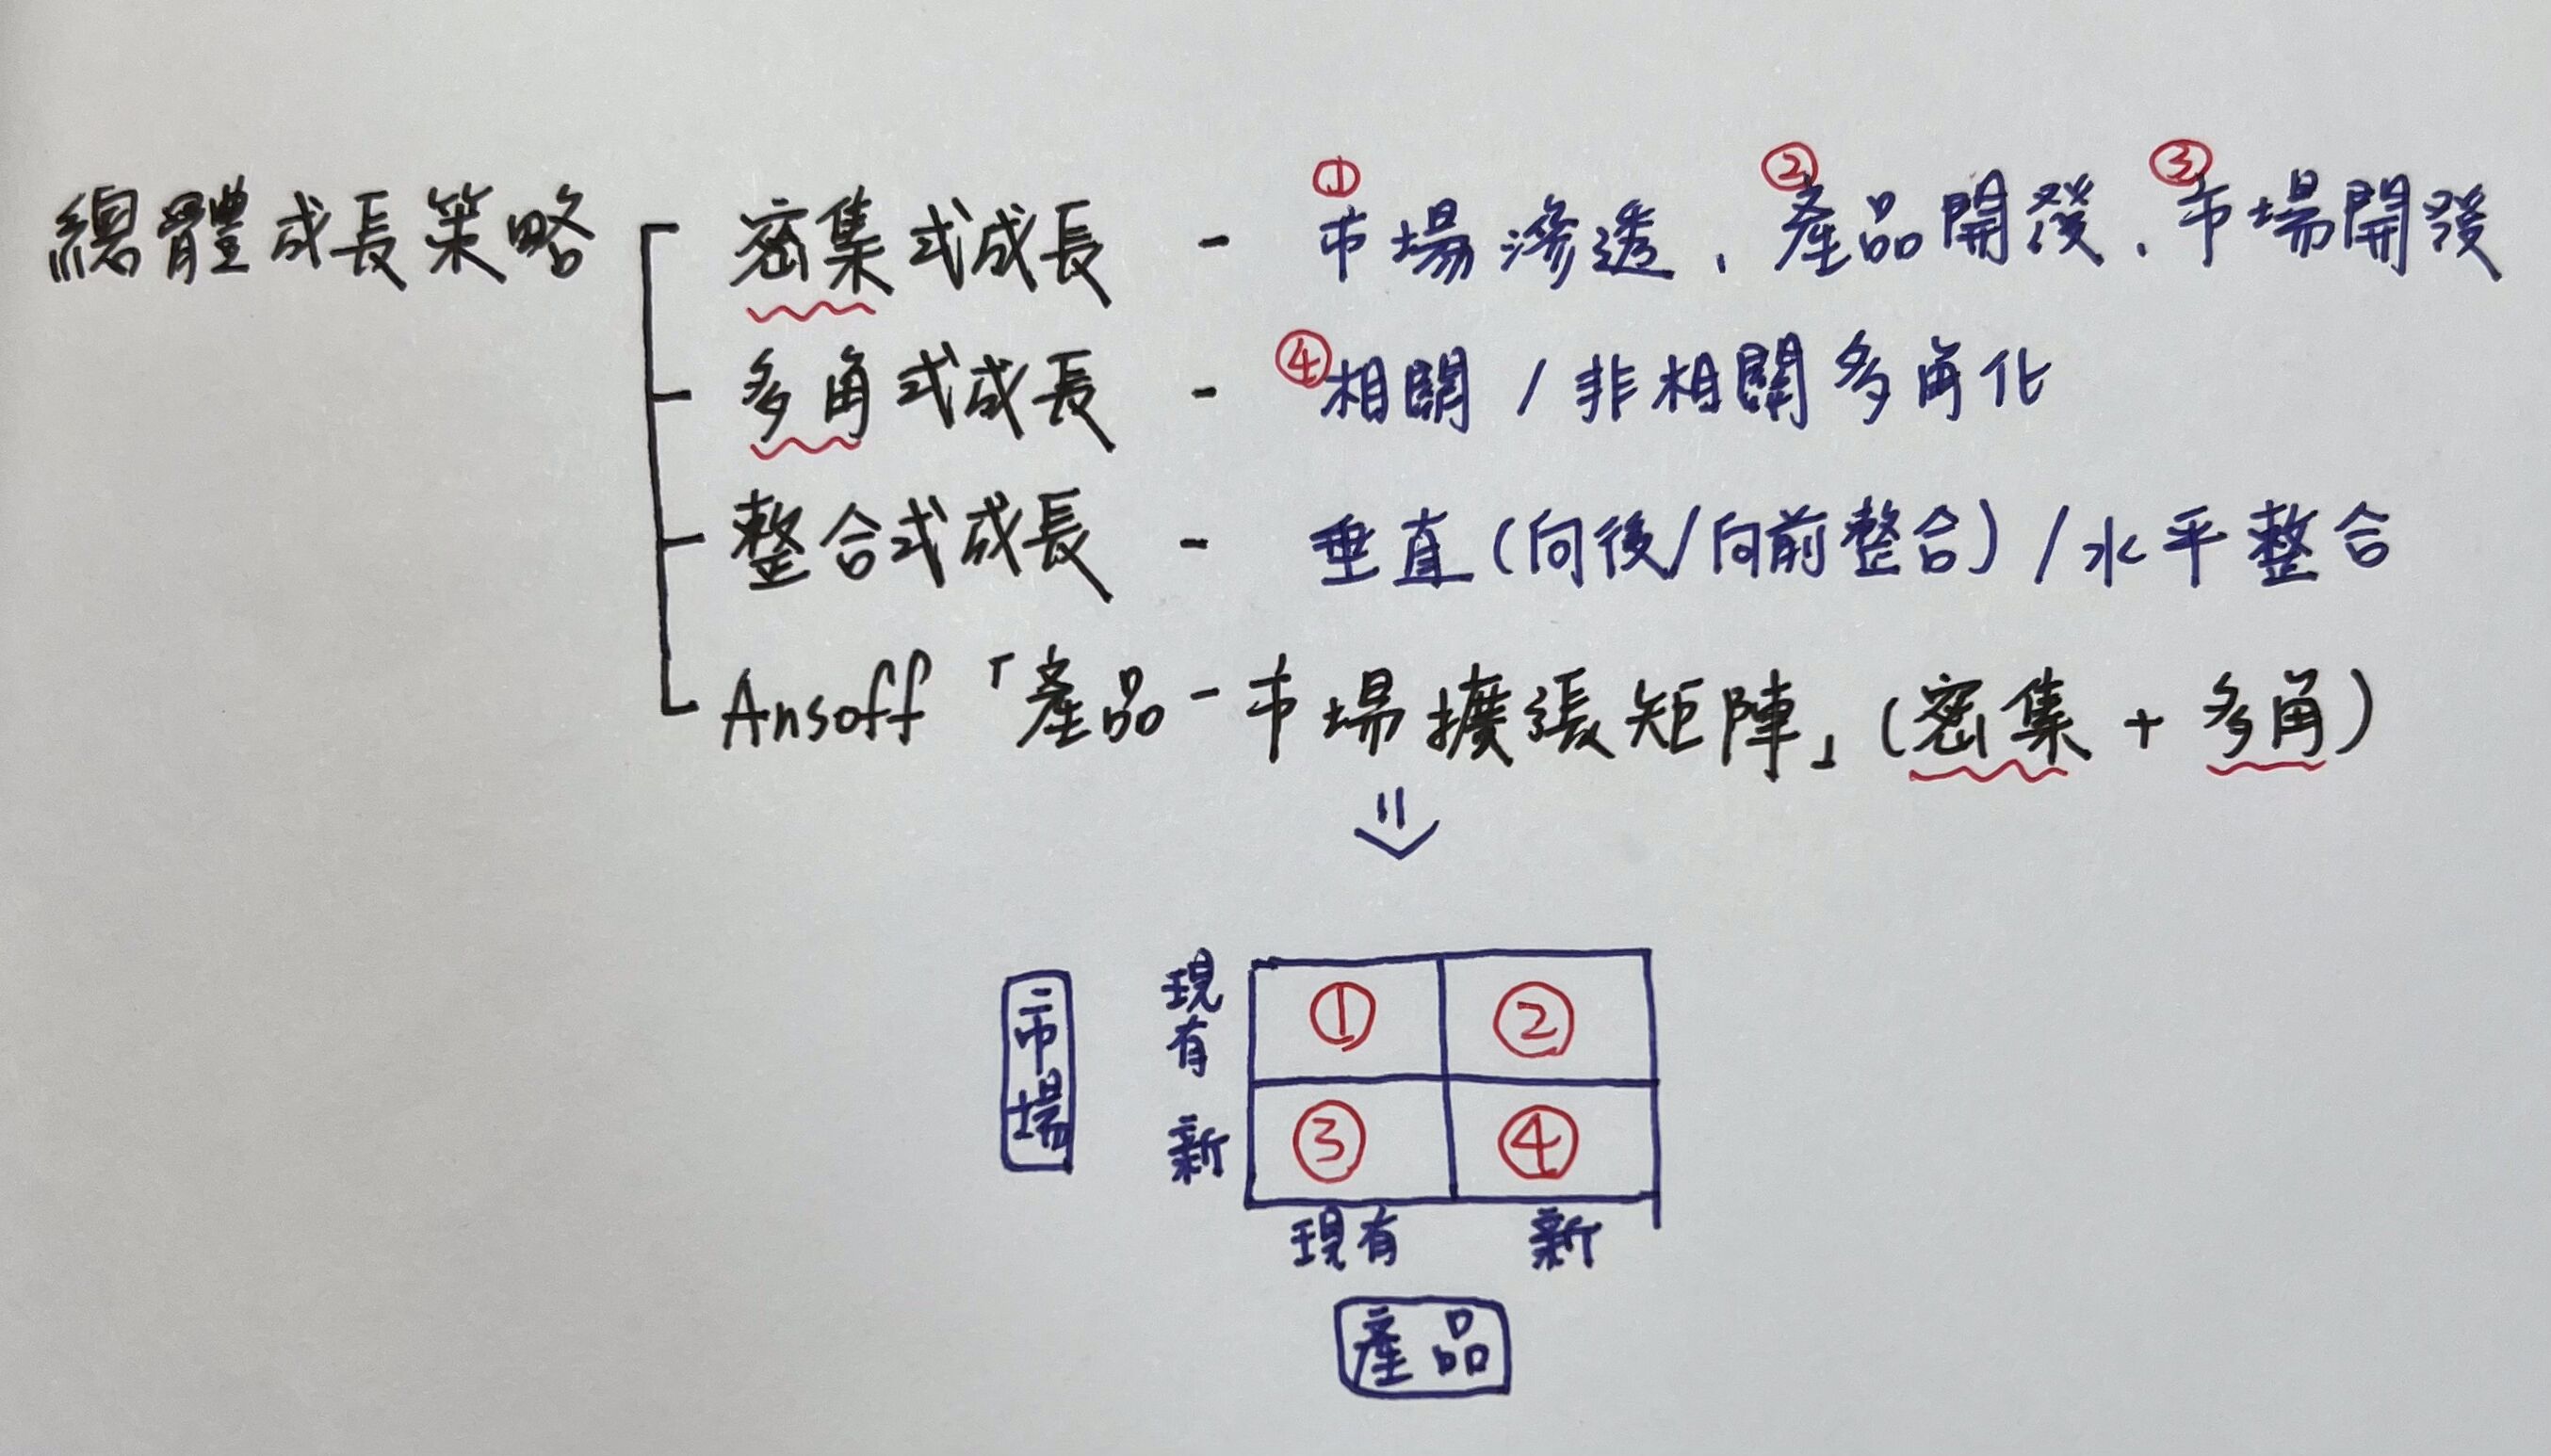 總體成長策略
密集式成長 - ①市場滲透、②產品開發、③市場開發
多角式成長 - ④相關/非相關多角化
整合式成長 - 垂直(向後/向前整合)/水平整合
Ansoff「產品-市場擴張矩陣」(密集+多角)
市場
現有 ① ②
新 ③ ④
現有 新
產品